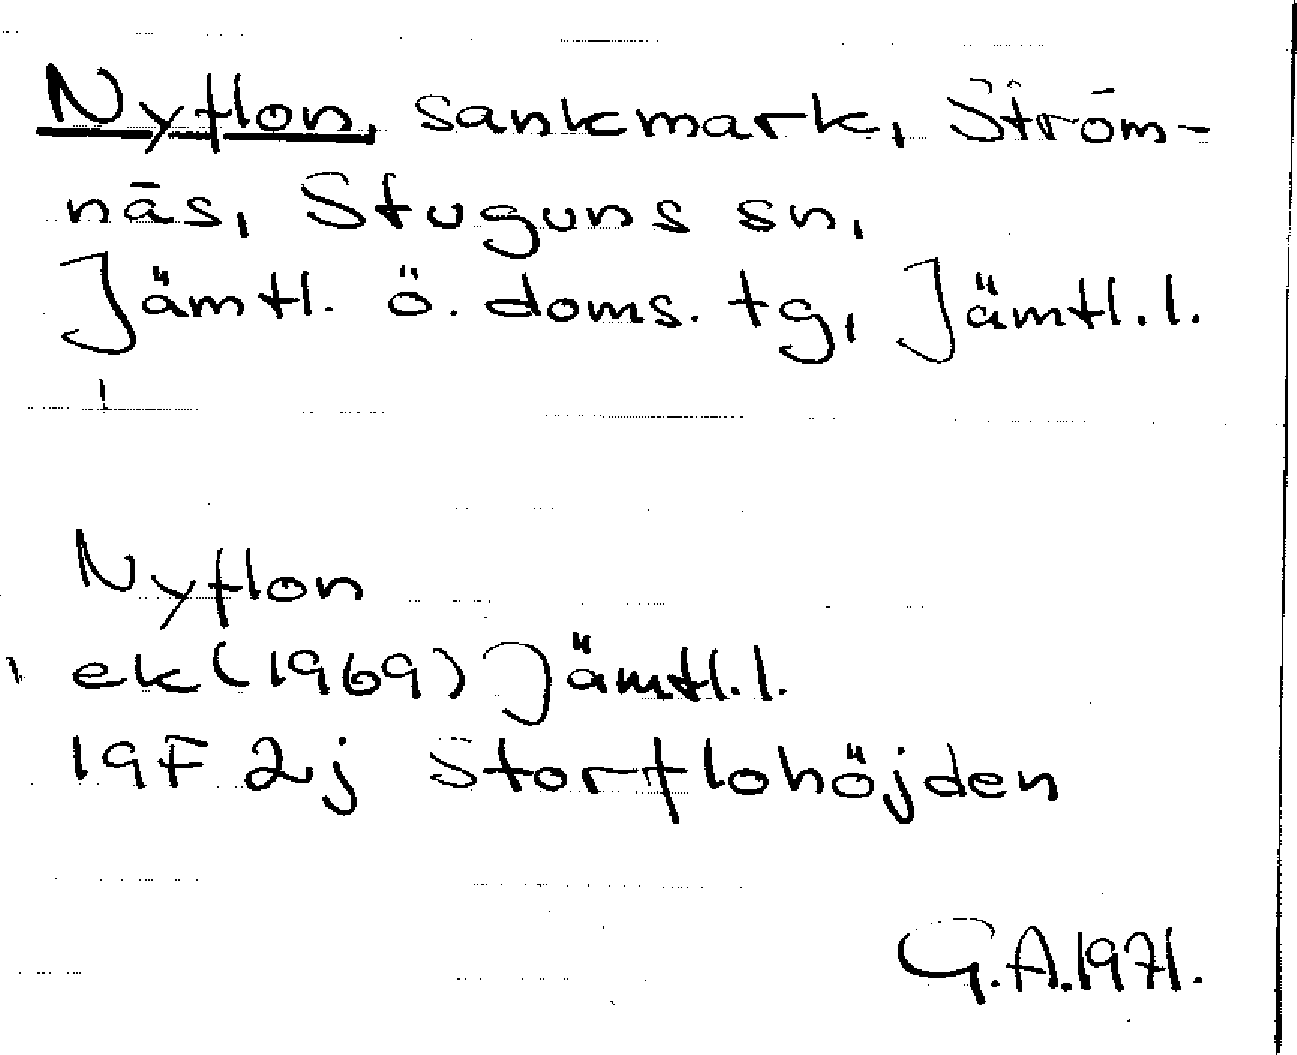 Nyflon, sankmark, Ström-
näs, Stuguns sn,
Jämtl. ö. doms. tg, Jämtl. l.
Nyflon
ek (1969) Jämtl. l.
19F 2j Storflohöjden
G.A. 1971.